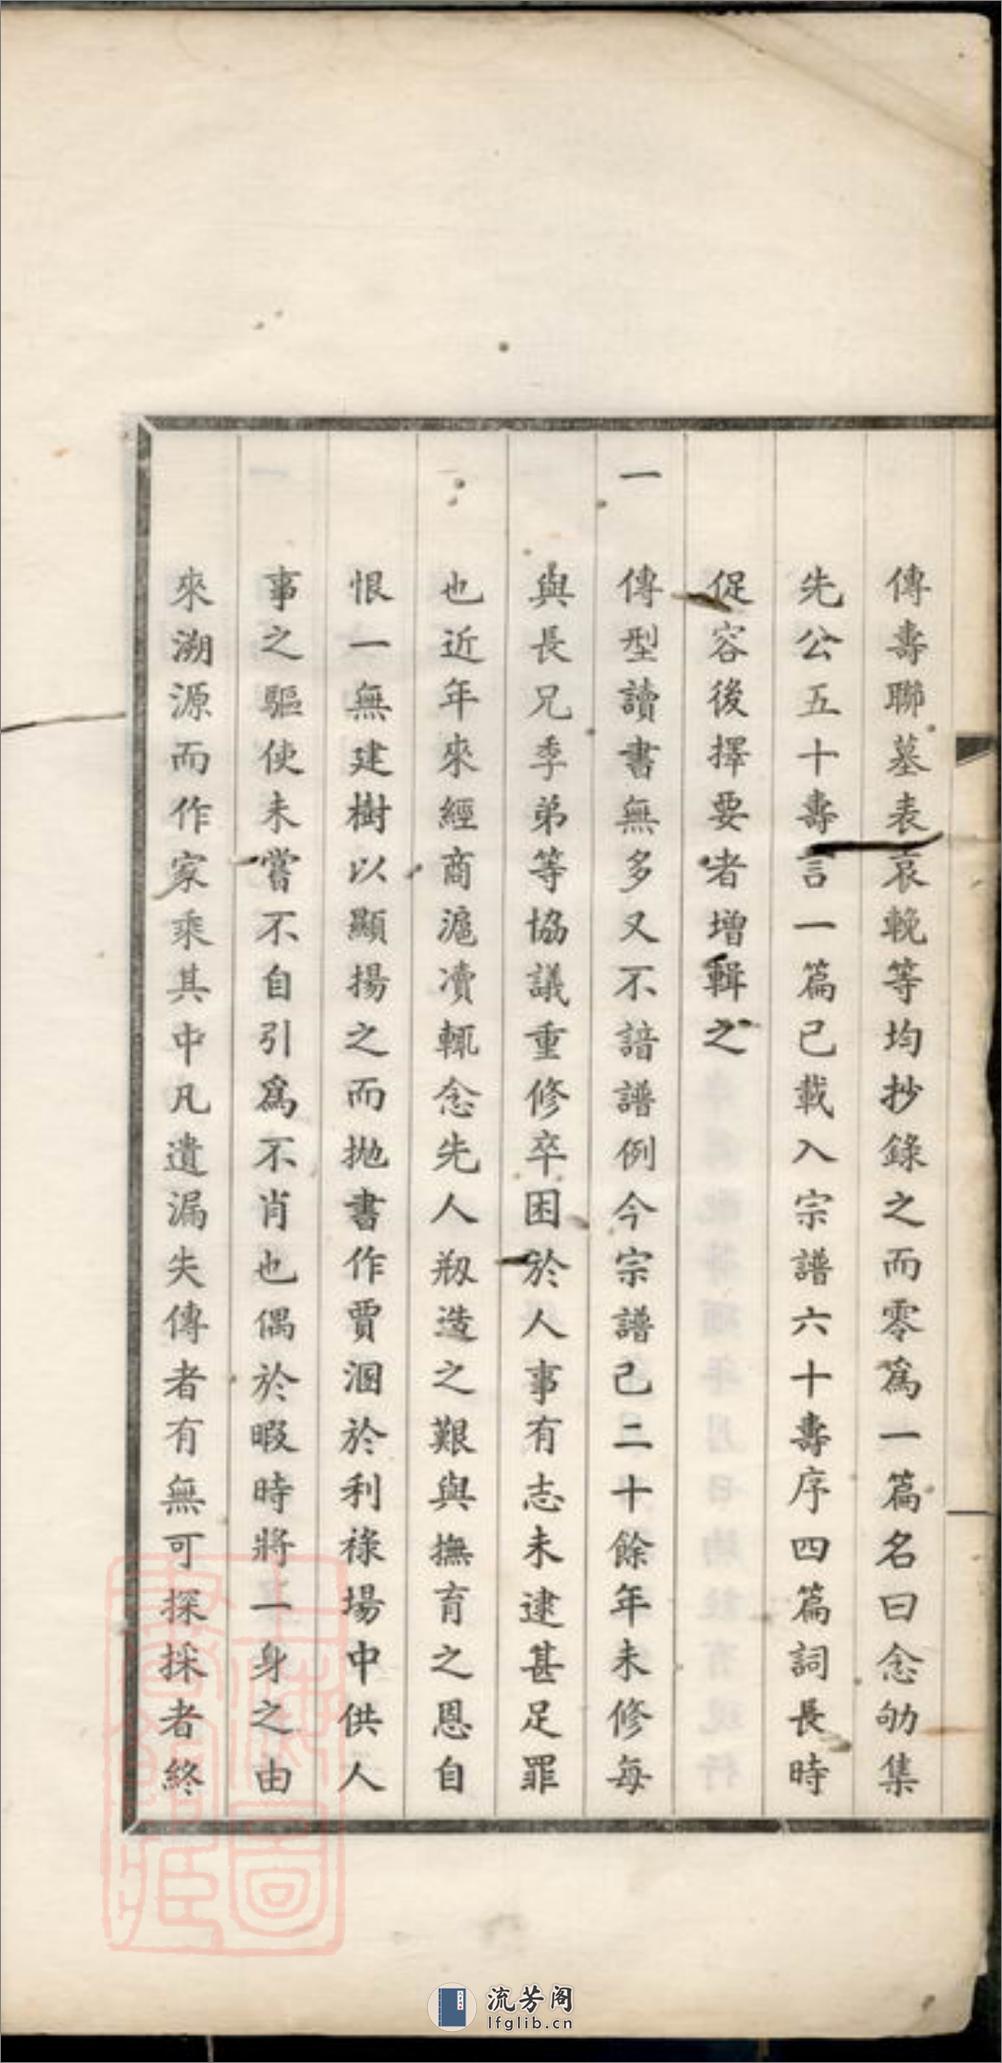 傳壽聯墓表哀輓等均抄錄之而零為一篇名曰念劬集
先公五十壽言一篇已載入宗譜六十壽序四篇詞長時
促容後擇要者增輯之
一 傳型讀書無多又不諳譜例今宗譜已二十餘年未修每
與長兄季弟等協議重修卒困於人事有志未逮甚足罪
也近年來經商滬瀆輒念先人剏造之艱與撫育之恩自
恨一無建樹以顯揚之而拋書作賈溷於利祿場中供人
事之驅使未嘗不自引為不肖也偶於暇時將一身之由
來溯源而作家乘其中凡遺漏失傳者有無可探採者終
流芳阁
lfglib.cn